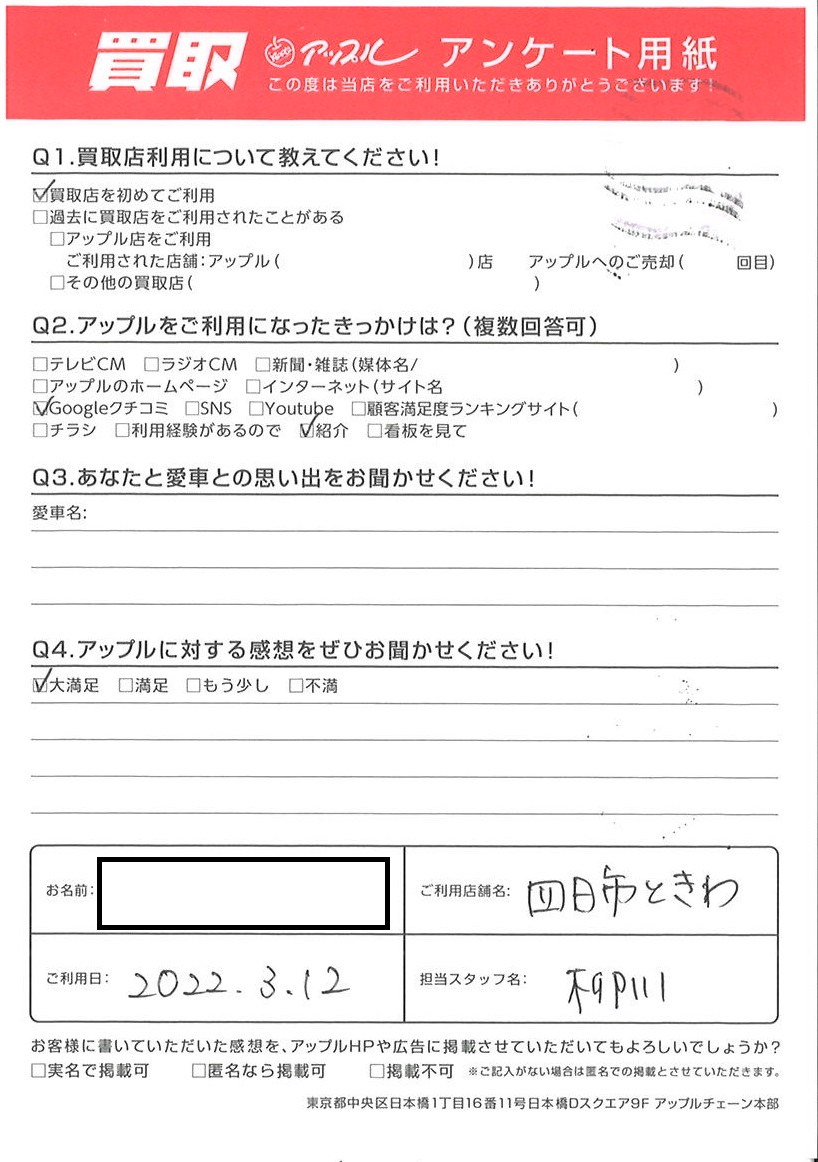 買取 アップル アンケート用紙
この度は当店をご利用いただきありがとうございます!
Q1.買取店利用について教えてください!
☑買取店を初めてご利用
□過去に買取店をご利用されたことがある
□アップル店をご利用
ご利用された店舗:アップル( )店 アップルへのご売却( 回目)
□その他の買取店( )
Q2.アップルをご利用になったきっかけは?(複数回答可)
□テレビCM □ラジオCM □新聞・雑誌(媒体名/ )
□アップルのホームページ □インターネット(サイト名 )
☑Googleクチコミ □SNS □Youtube □顧客満足度ランキングサイト( )
□チラシ □利用経験があるので ☑紹介 □看板を見て
Q3.あなたと愛車との思い出をお聞かせください!
愛車名:
Q4.アップルに対する感想をぜひお聞かせください!
☑大満足 □満足 □もう少し □不満
お名前:
ご利用店舗名: 四日市ときわ
ご利用日: 2022.3.12
担当スタッフ名: 柳川
お客様に書いていただいた感想を、アップルHPや広告に掲載させていただいてもよろしいでしょうか?
□実名で掲載可 □匿名なら掲載可 □掲載不可 ※ご記入がない場合は匿名での掲載とさせていただきます。
東京都中央区日本橋1丁目16番11号日本橋Dスクエア9F アップルチェーン本部